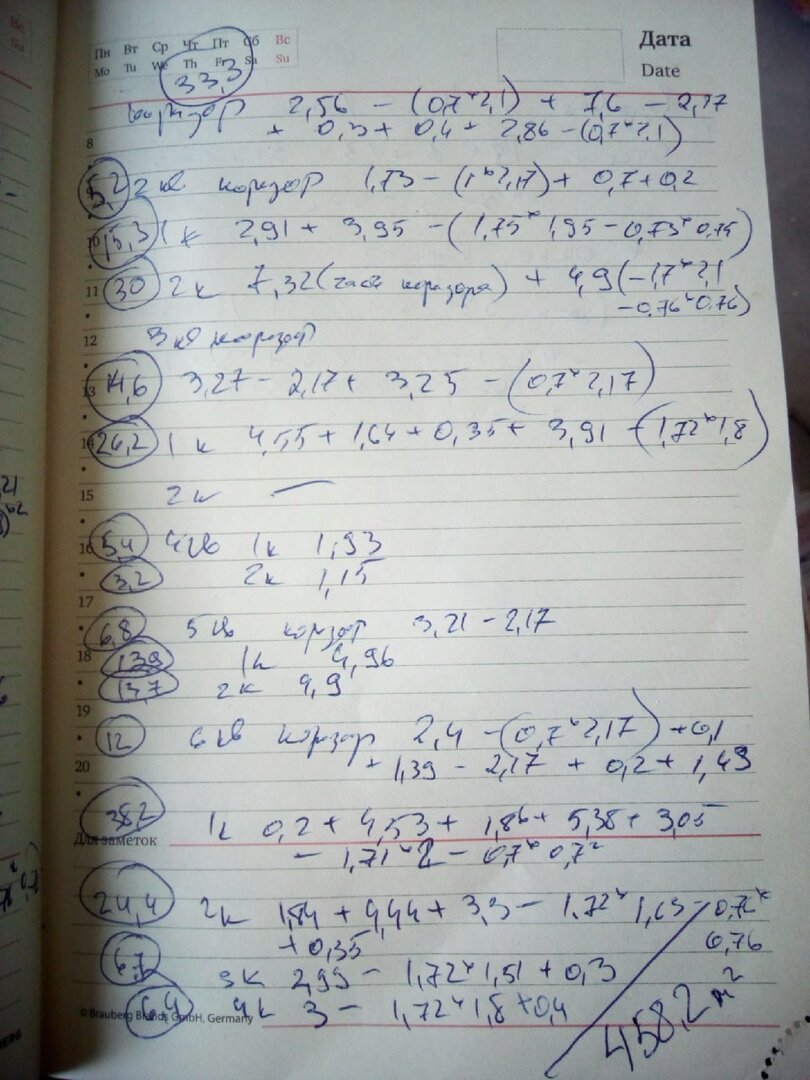 Вс
Su
Пн Вт Ср Чт Пт Сб Вс
Mo Tu We Th Fr Sa Su
Дата
Date
33,3
коридор 2,56 - (0,7*2,1) + 7,6 - 2,17
8 + 0,3 + 0,4 + 2,86 - (0,7*2,1)
5,2 2 кв коридор 1,73 - (1*2,17) + 0,7 + 0,2
10 15,3 1 к 2,91 + 3,95 - (1,75*1,95 - 0,73*0,75)
11 30 2 к 7,32 (часть коридора) + 4,9 (-1,7*2,1
-0,76*0,76)
12 3 кв коридор
13 14,6 3,27 - 2,17 + 3,25 - (0,7*2,17)
14 26,2 1 к 4,55 + 1,64 + 0,35 + 3,91 - (1,72*1,8)
15 2 к —
16 5,4 4 кв 1к 1,93
3,2 2к 1,15
17
6,8 5 кв коридор 3,21 - 2,17
18 13,9 1к 4,96
13,7 2к 4,9
19
12 6 кв коридор 2,4 - (0,7*2,17) + 0,1
20 + 1,39 - 2,17 + 0,2 + 1,49
38,2 1к 0,2 + 4,53 + 1,86 + 5,38 + 3,05
Для заметок - 1,71*2 - 0,7*0,7
24,4 2к 1,84 + 4,44 + 3,3 - 1,72*1,63 - 0,72*
+ 0,35 0,76
6,7 3к 2,99 - 1,72*1,51 + 0,3
6,4 4к 3 - 1,72*1,8 + 0,4
© Brauberg Brands GmbH, Germany
458,2 м²